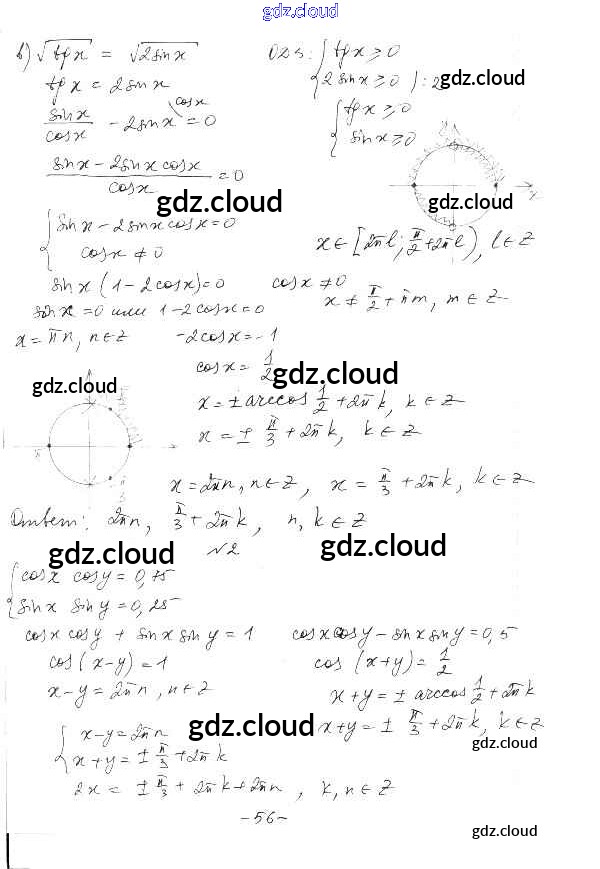 gdz.cloud
в) √tg x = √2 sin x    ОДЗ: { tg x ≥ 0
tg x = 2 sin x    { 2 sin x ≥ 0 ) : 2 gdz.cloud
sin x / cos x - 2 sin x ^cos x = 0    { tg x ≥ 0
{ sin x ≥ 0
(sin x - 2 sin x cos x) / cos x = 0
gdz.cloud gdz.cloud
{ sin x - 2 sin x cos x = 0
{ cos x ≠ 0    x ∈ [2πl; π/2 + 2πl), l ∈ Z
sin x (1 - 2 cos x) = 0    cos x ≠ 0
sin x = 0 или 1 - 2 cos x = 0    x ≠ π/2 + πm, m ∈ Z
x = πn, n ∈ Z    -2 cos x = -1
cos x = 1/2
gdz.cloud gdz.cloud
x = ± arccos 1/2 + 2πk, k ∈ Z
x = ± π/3 + 2πk, k ∈ Z
π
x = 2πn, n ∈ Z, x = π/3 + 2πk, k ∈ Z
Ответ: 2πn, π/3 + 2πk, n, k ∈ Z
gdz.cloud №2 gdz.cloud
{ cos x cos y = 0,75
{ sin x sin y = 0,25
cos x cos y + sin x sin y = 1    cos x cos y - sin x sin y = 0,5
cos (x - y) = 1    cos (x + y) = 1/2
x - y = 2πn, n ∈ Z    x + y = ± arccos 1/2 + 2πk
{ x - y = 2πn gdz.cloud x + y = ± π/3 + 2πk, k ∈ Z
{ x + y = ± π/3 + 2πk gdz.cloud
2x = ± π/3 + 2πk + 2πn, k, n ∈ Z
- 56 -
gdz.cloud